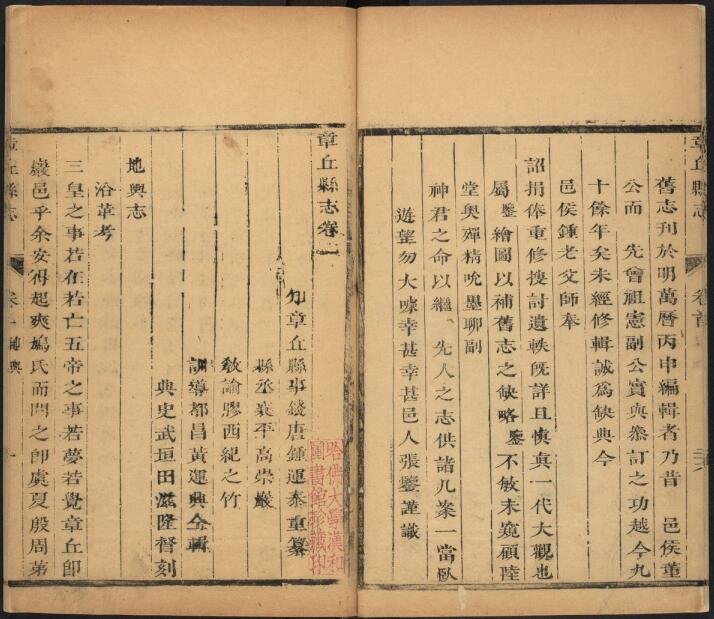 舊志刊於明萬曆丙申編輯者乃昔 邑侯董
公而 先曾祖憲副公實與叅訂之功越今九
十餘年矣未經修輯誠爲缺典今
邑侯鍾老父師奉
詔捐俸重修搜討遺軼旣詳且慎真一代大觀也
屬鑒繪圖以補舊志之缺略鑒不敏未窺顧陸
堂奥殫精吮墨聊副
神君之命以繼 先人之志供諸几案一當臥
遊望勿大噱幸甚幸甚邑人張鑒謹識
章丘縣志
卷首
章丘縣志卷一
知章丘縣事錢唐鍾運泰重纂
縣丞襄平高崇巖
敎諭膠西紀之竹
訓導都昌黃運興仝輯
典史武垣田滋隆督刻
地輿志
沿革考
三皇之事若在若亡五帝之事若夢若覺章丘卽
巖邑乎余安得起爽鳩氏而問之卽虞夏殷周第
章丘縣志
卷一 輿
一
哈佛大學漢和
圖書館珍藏印